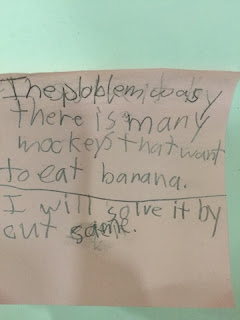 The ploblem is
there is many
mockeys that want
to eat banana.
I will solve it by
cut same.